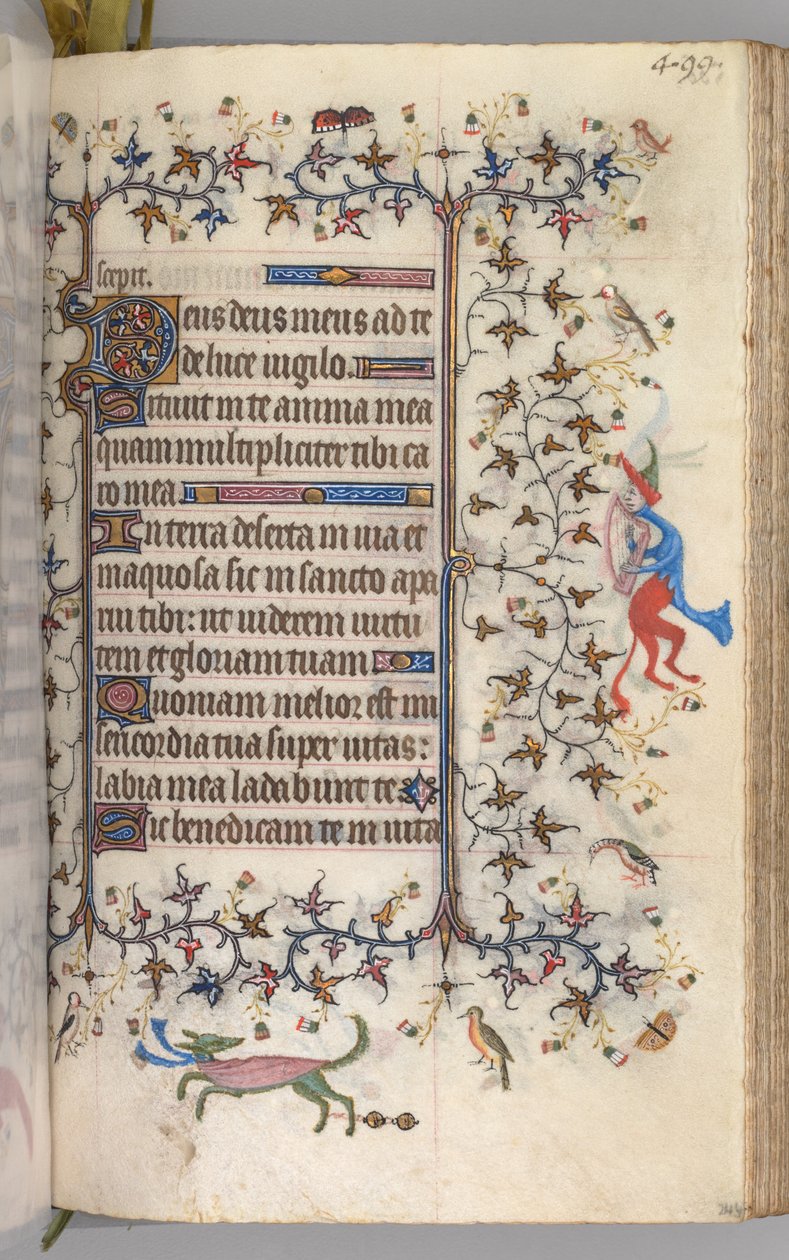 4-99
scepit.
Deus deus meus ad te
de luce vigilo.
Sitiuit in te anima mea
quam multipliciter tibi ca
ro mea.
In terra deserta in uia et
inaquosa sic in sancto apa
rui tibi: ut uiderem uirtu
tem et gloriam tuam
Quoniam melior est mi
sericordia tua super uitas:
labia mea ladabunt te
Sic benedicam te in uita